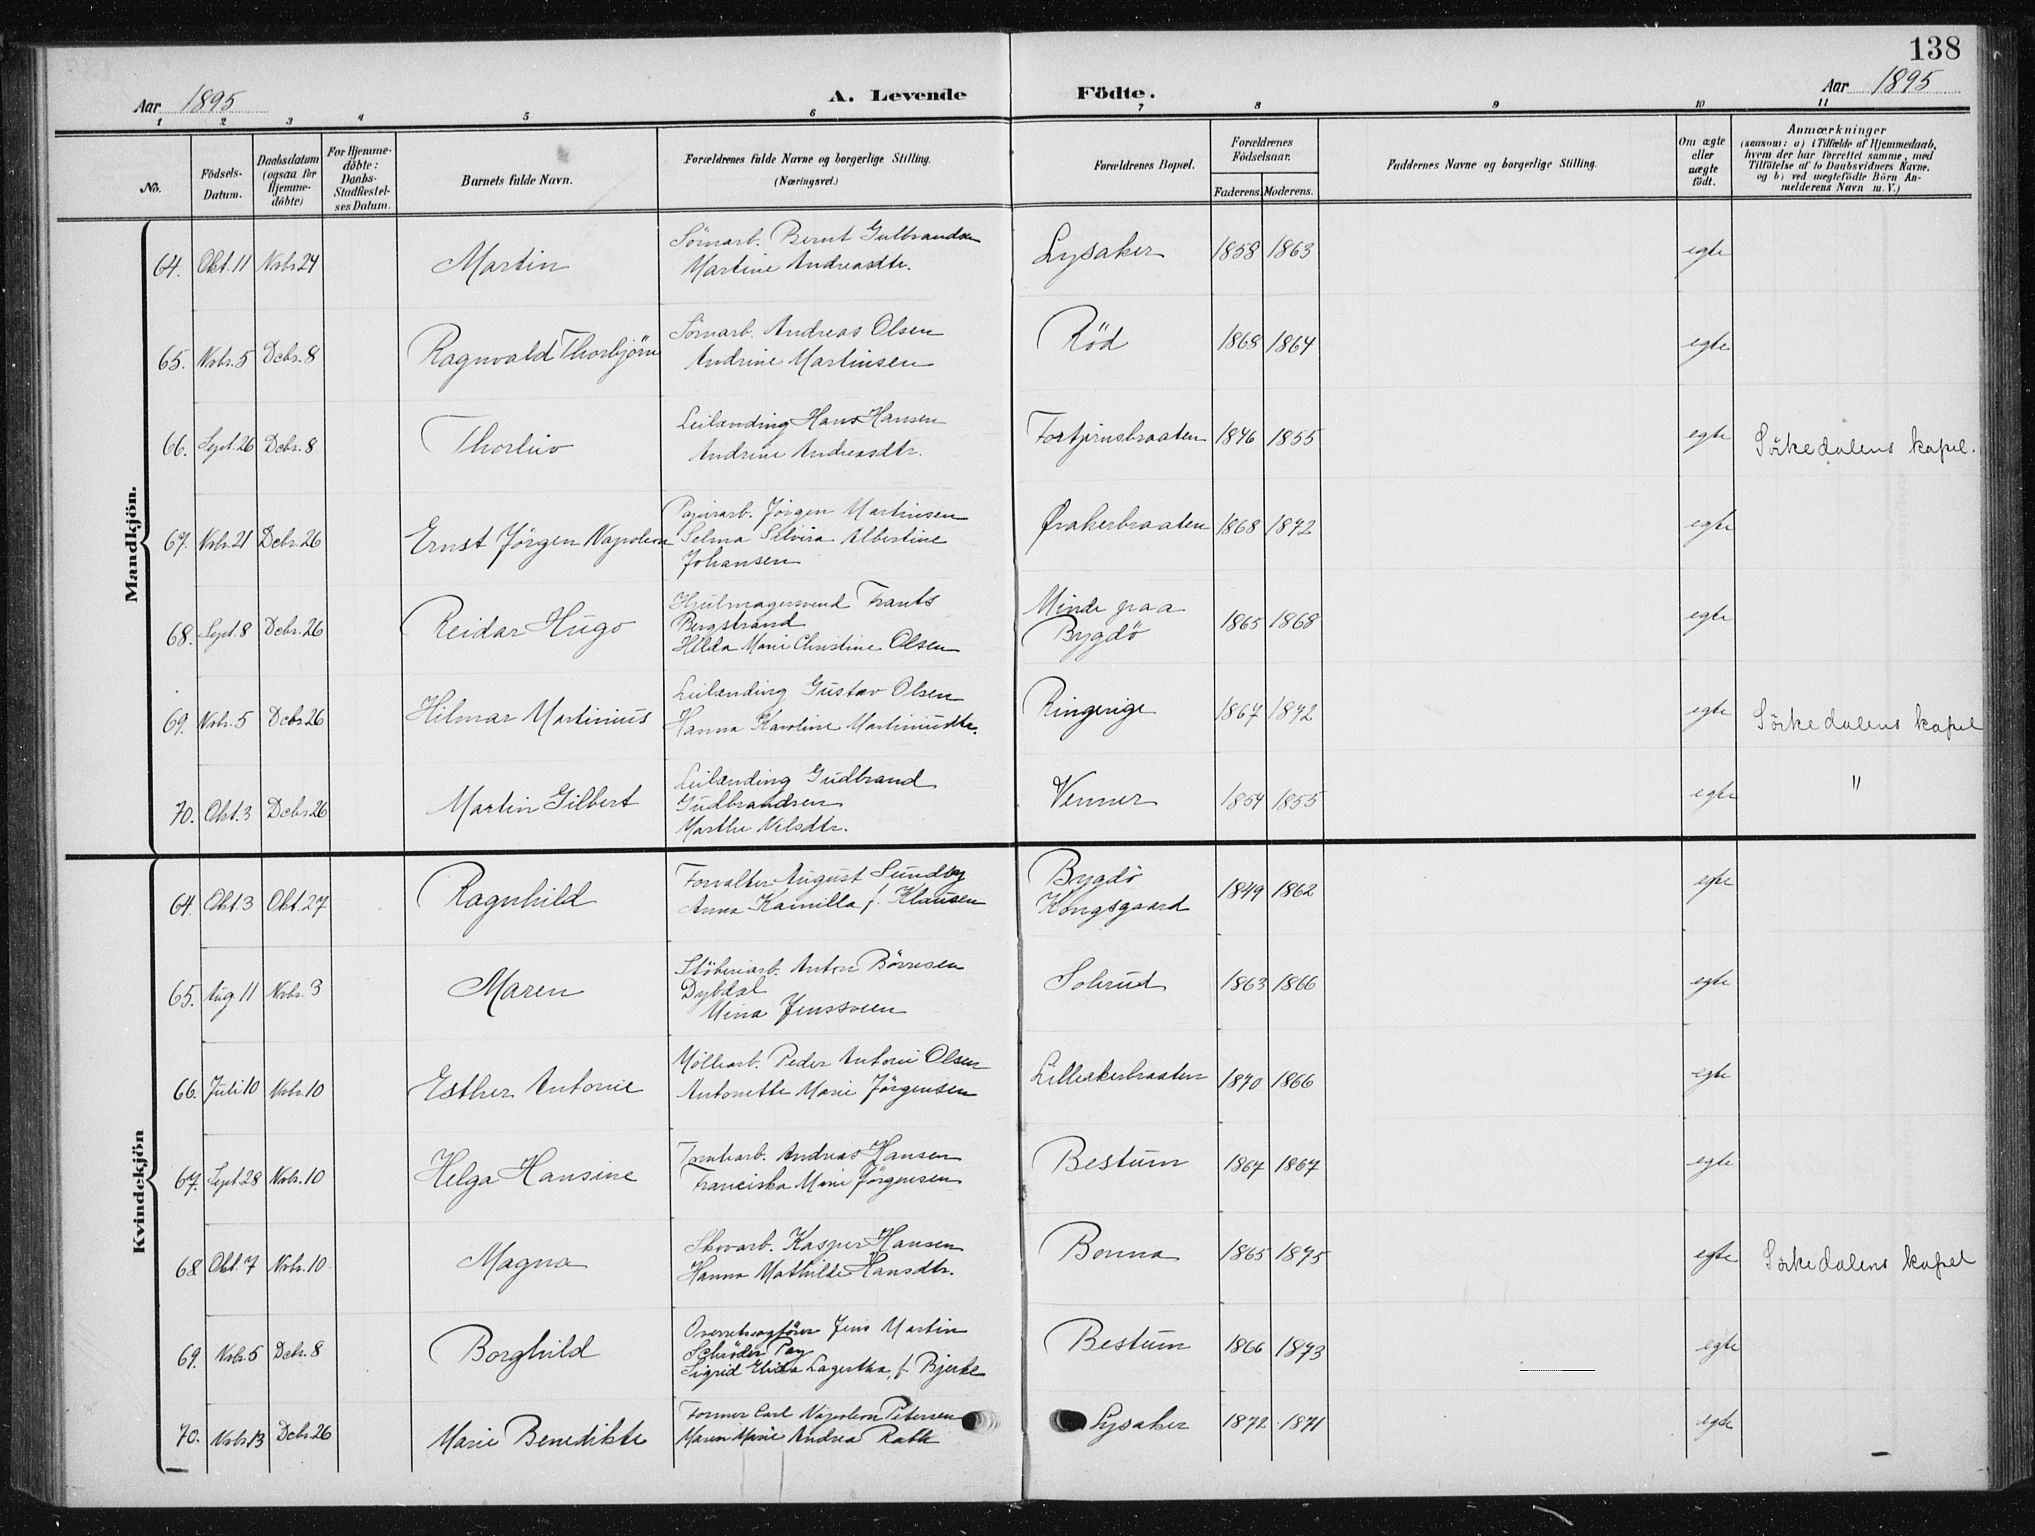 138
Aar 1895
A. Levende
Födte.
Aar 1895
1 2 3 4 5 6 7 8 9 10 11
No.
Födsels-Datum.
Daabsdatum (ogsaa for Hjemme-döbte)
For Hjemme-döbte: Daabs-Stadfæstel-ses Datum.
Barnets fulde Navn.
Forældrenes fulde Navne og borgerlige Stilling.
(Næringsvei.)
Forældrenes Bopæl.
Forældrenes Födselsaar.
Faderens. Moderens.
Faddernes Navne og borgerlige Stilling.
Om ægte eller uægte födt.
Anmærkninger
(saasom: a) i Tilfælde af Hjemmedaab, hvem der har forrettet samme, med Tilföielse af to Daabsvidners Navne. og b) ved uægtefödte Börn An-melderens Navn m. V.)
Mandkjön.
64. Okt. 11 Novbr. 24 Martin
Sömarb. Bernt Gulbrandsen
Martine Andreasdtr.
Lysaker 1858 1863 egte
65. Novbr. 5 Dcbr. 8 Ragnvald Thorbjörn
Sömarb. Andreas Olsen
Andrine Martinsen
Röd 1868 1864 egte
66. Sept. 26 Dcbr. 8 Thorleiv
Leilænding Hans Hansen
Andrine Andreasdtr.
Fortjernsbraaten 1846 1855 egte Sörkedalens kapel.
67. Novbr. 21 Dcbr. 26 Ernst Jörgen Napoleon
Papirarb. Jörgen Martinsen
Selma Selvira Albertine
Johansen
Örakerbraaten 1868 1872 egte
68. Sept. 8 Dcbr. 26 Reidar Hugo
Hjulmagersvend Frants
Bergstrand
Hilda Marie Christine Olsen
Minde paa
Bygdö 1865 1868 egte
69. Novbr. 5 Dcbr. 26 Hilmar Martinius
Leilænding Gustav Olsen
Hanna Karoline Martinusdtr.
Ringerige 1867 1872 egte Sörkedalens kapel
70. Okt. 3 Dcbr. 26 Martin Gilbert
Leilænding Gudbrand
Gudbrandsen
Marthe Nilsdtr.
Venner 1854 1855 egte "
Kvindekjön
64. Okt. 3 Okt. 27 Ragnhild
Forvalter August Sundby
Anna Kamilla f. Klausen
Bygdö
Kongsgaard 1849 1862 egte
65. Aug. 11 Novbr. 3 Maren
Stöberiarb. Anton Börresen
Dybdal
Mina Jenssveen
Sollerud 1863 1866 egte
66. Juli 10 Novbr. 10 Esther Antonie
Möllearb. Peder Antoni Olsen
Antonette Marie Jörgensen
Lilleakerbraaten 1870 1866 egte
67. Sept. 28 Novbr. 10 Helga Hansine
Tomtearb. Andreas Hansen
Franciska Marie Jörgensen
Bestum 1867 1867 egte
68 Okt. 7 Novbr. 10 Magna
Skovarb. Kasper Hansen
Hanna Mathilde Hansdtr.
Bonna 1865 1875 egte Sörkedalens kapel
69. Novbr. 5 Dcbr. 8 Borghild
Overretssagförer Jens Martin
Schröder Pay
Sigrid Elida Lagertha, f. Bjerke
Bestum 1866 1873 egte
70. Novbr. 13 Dcbr. 26 Marie Benedikte
Former Carl Napoleon Petersen
Maren Marie Andrea Rath
Lysaker 1872 1871 egte